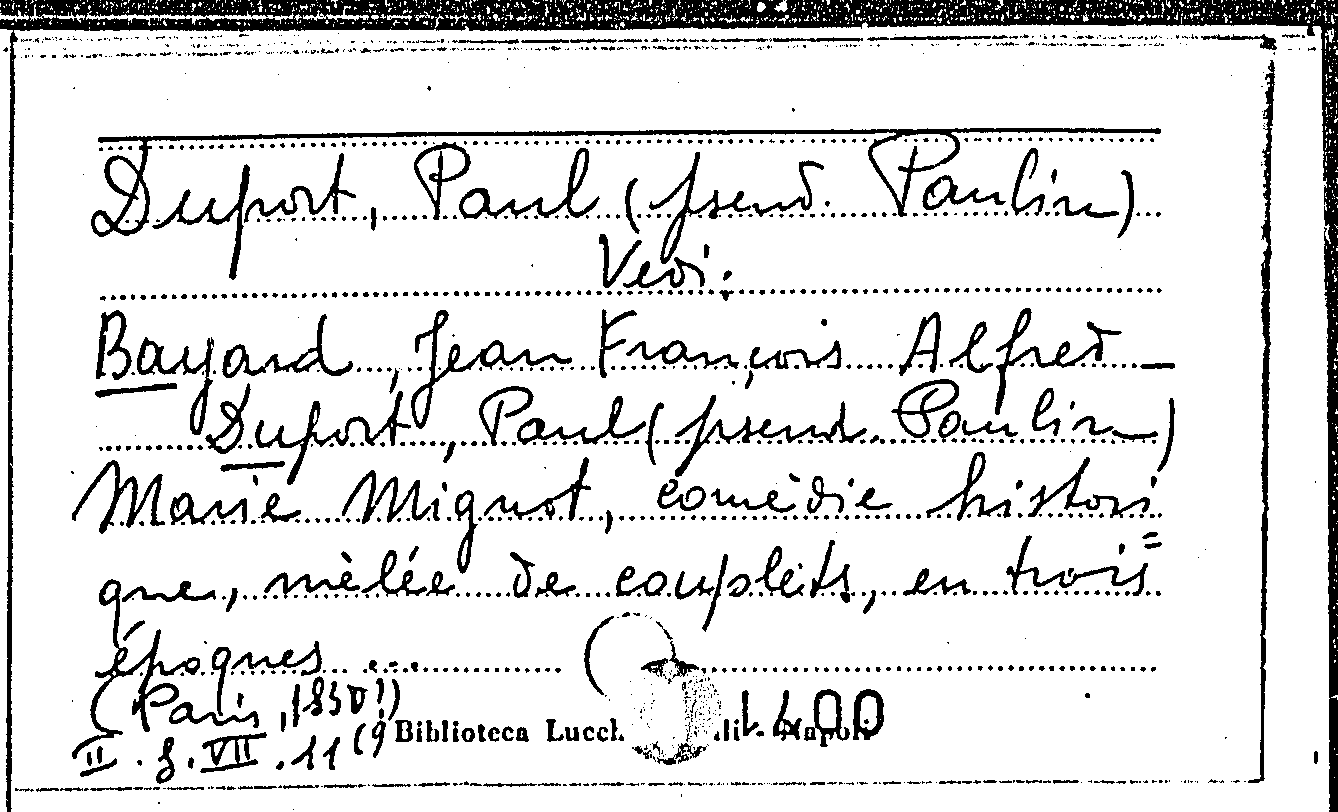 Duport, Paul (pseud. Paulin)
Vedi:
Bayard, Jean François Alfred —
Duport, Paul (pseud. Paulin)
Marie Mignot, comèdie histori=
que, mèlée de couplets, en trois
époques ...
(Paris, 1830?)
II. 8. VII. 11 (9 Biblioteca Lucch li - Napoli
1400